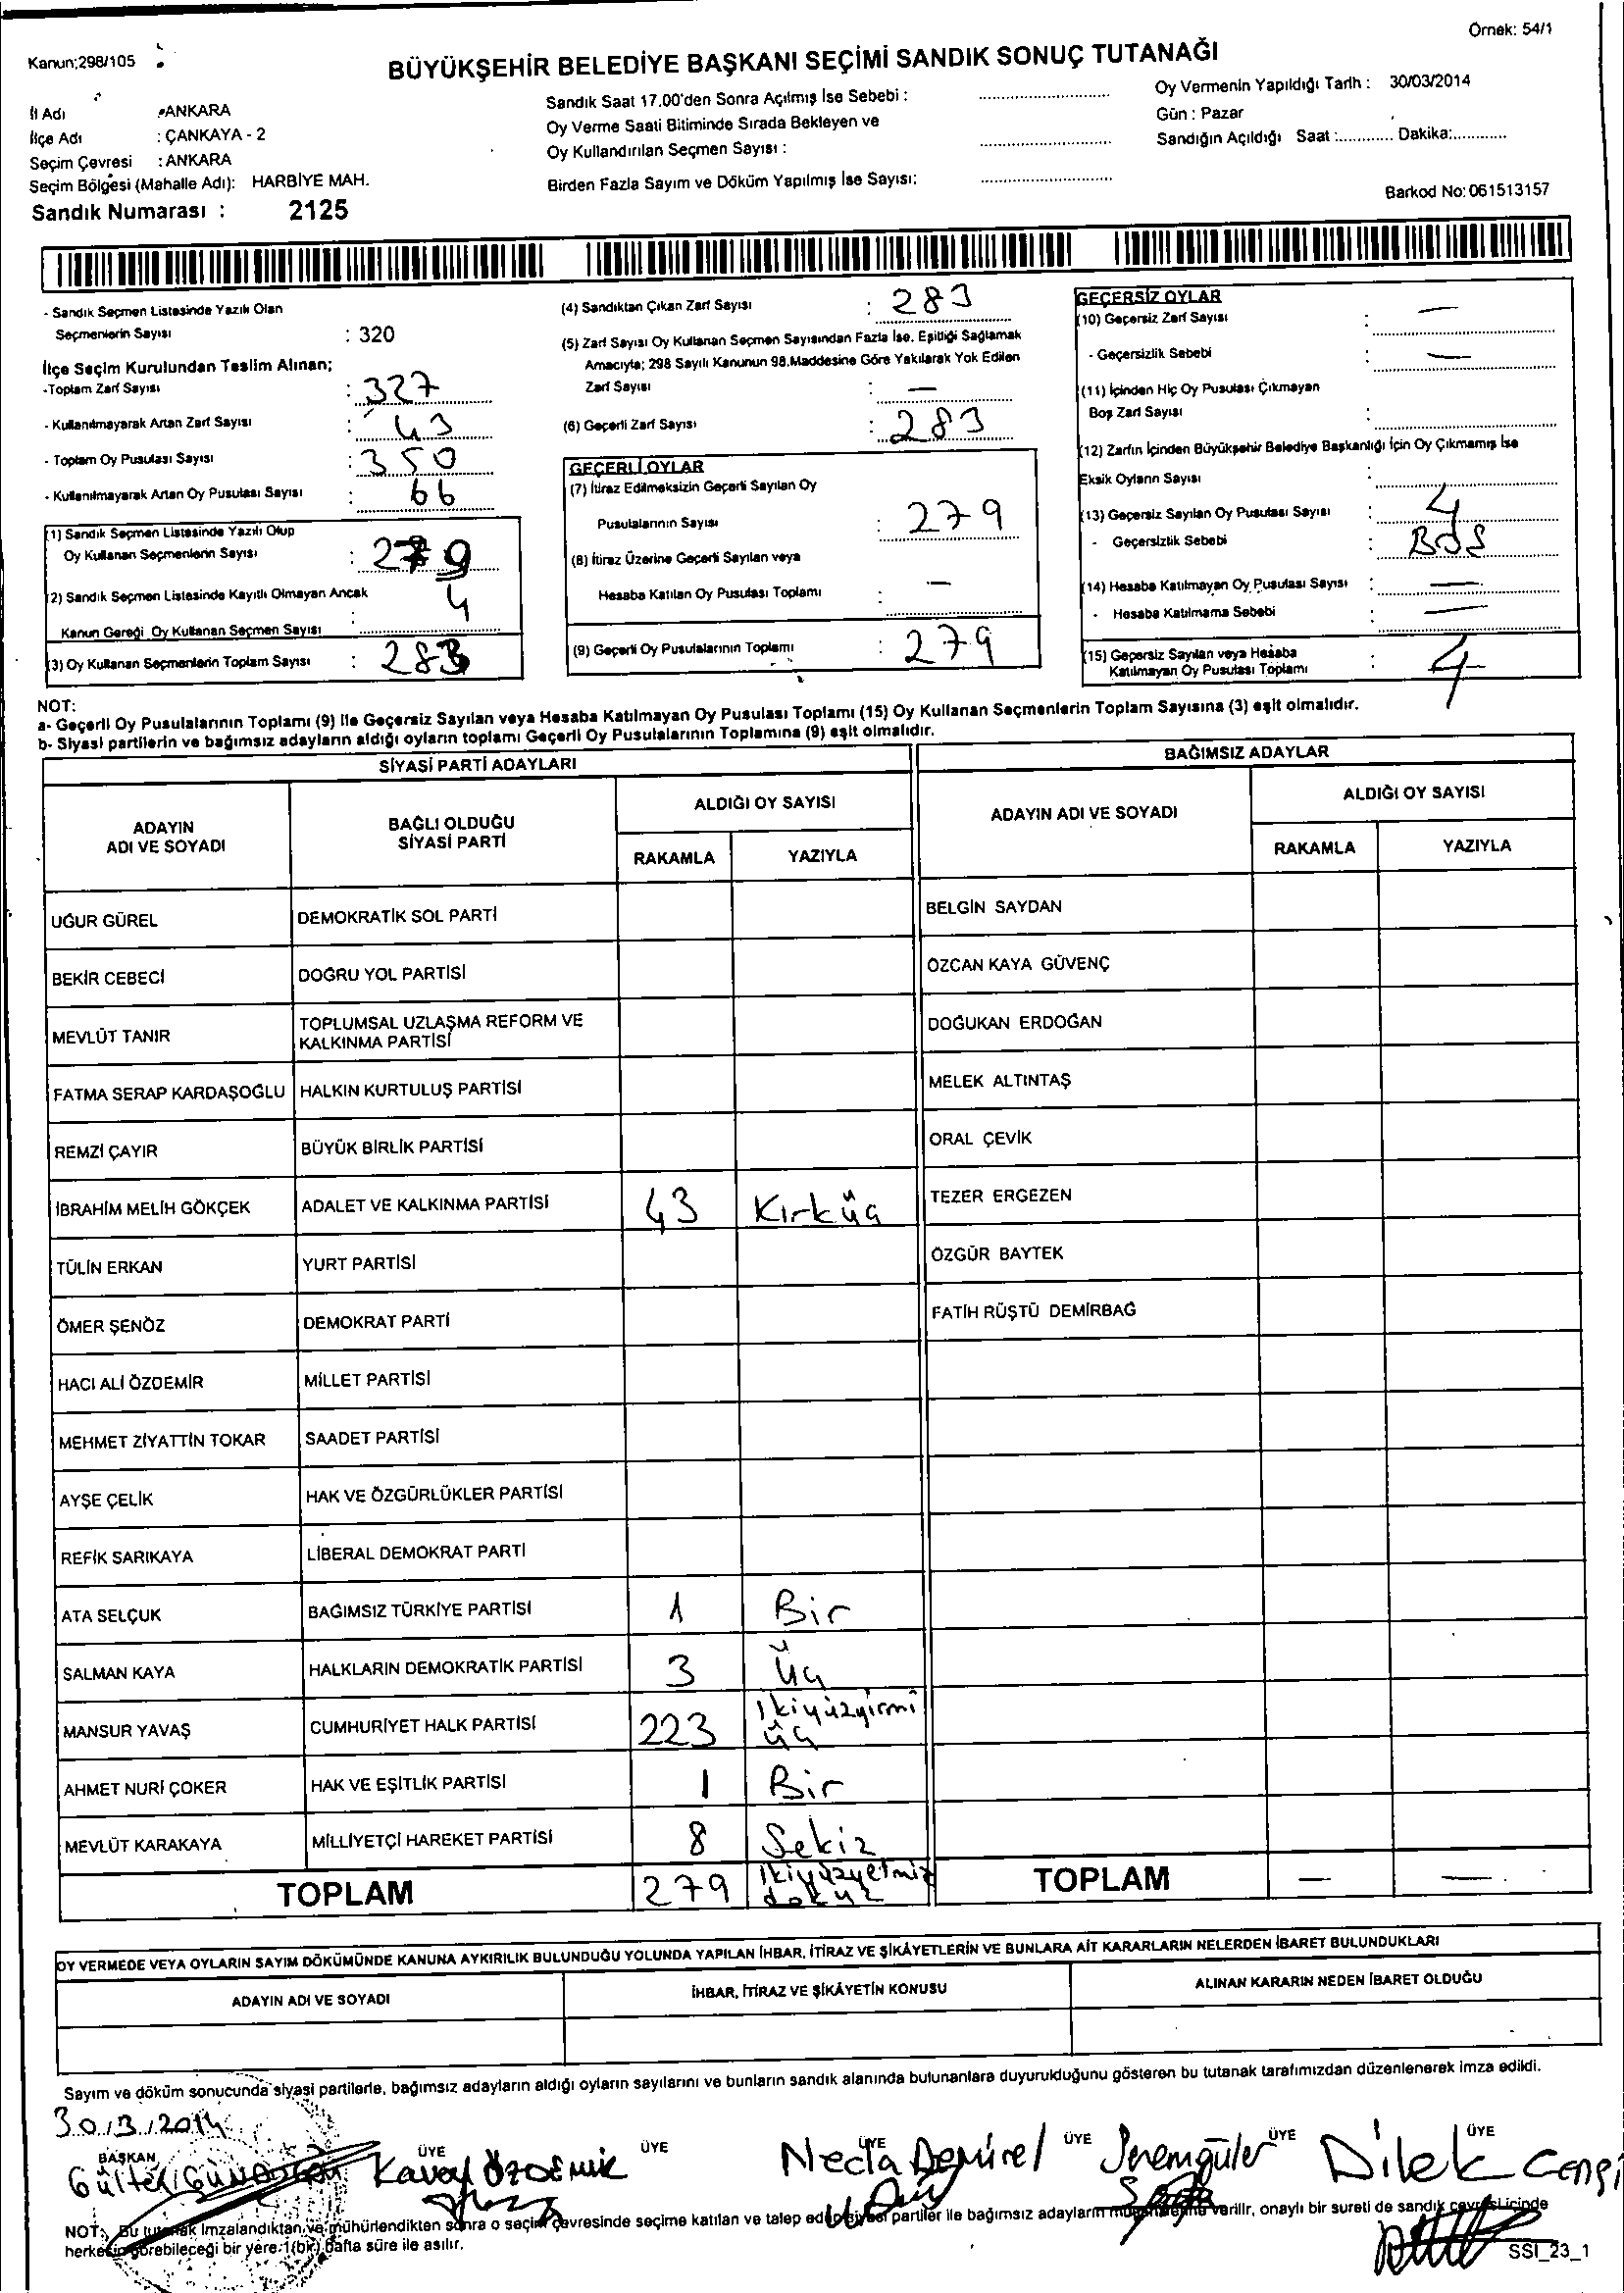 Örnek: 54/1
Kanun:298/105
BÜYÜKŞEHİR BELEDİYE BAŞKANI SEÇİMİ SANDIK SONUÇ TUTANAĞI
İl Adı : ANKARA
İlçe Adı : ÇANKAYA - 2
Seçim Çevresi : ANKARA
Seçim Bölgesi (Mahalle Adı): HARBİYE MAH.
Sandık Numarası : 2125
Sandık Saat 17.00'den Sonra Açılmış İse Sebebi :
Oy Verme Saati Bitiminde Sırada Bekleyen ve
Oy Kullandırılan Seçmen Sayısı :
Birden Fazla Sayım ve Döküm Yapılmış İse Sayısı:
Oy Vermenin Yapıldığı Tarih : 30/03/2014
Gün : Pazar
Sandığın Açıldığı Saat :............ Dakika:............
Barkod No: 061513157
- Sandık Seçmen Listesinde Yazılı Olan
Seçmenlerin Sayısı : 320
İlçe Seçim Kurulundan Teslim Alınan;
-Toplam Zarf Sayısı : 327
- Kullanılmayarak Artan Zarf Sayısı : 43
- Toplam Oy Pusulası Sayısı : 350
- Kullanılmayarak Artan Oy Pusulası Sayısı : 66
(1) Sandık Seçmen Listesinde Yazılı Olup
Oy Kullanan Seçmenlerin Sayısı : 279
(2) Sandık Seçmen Listesinde Kayıtlı Olmayan Ancak
Kanun Gereği Oy Kullanan Seçmen Sayısı : 4
(3) Oy Kullanan Seçmenlerin Toplam Sayısı : 283
(4) Sandıktan Çıkan Zarf Sayısı : 283
(5) Zarf Sayısı Oy Kullanan Seçmen Sayısından Fazla İse, Eşitliği Sağlamak
Amacıyla; 298 Sayılı Kanunun 98.Maddesine Göre Yakılarak Yok Edilen
Zarf Sayısı : —
(6) Geçerli Zarf Sayısı : 283
GEÇERLİ OYLAR
(7) İtiraz Edilmeksizin Geçerli Sayılan Oy
Pusulalarının Sayısı : 279
(8) İtiraz Üzerine Geçerli Sayılan veya
Hesaba Katılan Oy Pusulası Toplamı : —
(9) Geçerli Oy Pusulalarının Toplamı : 279
GEÇERSİZ OYLAR
(10) Geçersiz Zarf Sayısı : —
- Geçersizlik Sebebi : —
(11) İçinden Hiç Oy Pusulası Çıkmayan
Boş Zarf Sayısı :
(12) Zarfın İçinden Büyükşehir Belediye Başkanlığı İçin Oy Çıkmamış İse
Eksik Oyların Sayısı :
(13) Geçersiz Sayılan Oy Pusulası Sayısı : 4
- Geçersizlik Sebebi : BOŞ
(14) Hesaba Katılmayan Oy Pusulası Sayısı : —
- Hesaba Katılmama Sebebi : —
(15) Geçersiz Sayılan veya Hesaba
Katılmayan Oy Pusulası Toplamı : 4
NOT:
a- Geçerli Oy Pusulalarının Toplamı (9) ile Geçersiz Sayılan veya Hesaba Katılmayan Oy Pusulası Toplamı (15) Oy Kullanan Seçmenlerin Toplam Sayısına (3) eşit olmalıdır.
b- Siyasi partilerin ve bağımsız adayların aldığı oyların toplamı Geçerli Oy Pusulalarının Toplamına (9) eşit olmalıdır.
SİYASİ PARTİ ADAYLARI
ADAYIN ADI VE SOYADI
BAĞLI OLDUĞU SİYASİ PARTİ
ALDIĞI OY SAYISI
RAKAMLA YAZIYLA
UĞUR GÜREL DEMOKRATİK SOL PARTİ
BEKİR CEBECİ DOĞRU YOL PARTİSİ
MEVLÜT TANIR TOPLUMSAL UZLAŞMA REFORM VE
KALKINMA PARTİSİ
FATMA SERAP KARDAŞOĞLU HALKIN KURTULUŞ PARTİSİ
REMZİ ÇAYIR BÜYÜK BİRLİK PARTİSİ
İBRAHİM MELİH GÖKÇEK ADALET VE KALKINMA PARTİSİ 43 Kırküç
TÜLİN ERKAN YURT PARTİSİ
ÖMER ŞENÖZ DEMOKRAT PARTİ
HACI ALİ ÖZDEMİR MİLLET PARTİSİ
MEHMET ZİYATTİN TOKAR SAADET PARTİSİ
AYŞE ÇELİK HAK VE ÖZGÜRLÜKLER PARTİSİ
REFİK SARIKAYA LİBERAL DEMOKRAT PARTİ
ATA SELÇUK BAĞIMSIZ TÜRKİYE PARTİSİ 1 Bir
SALMAN KAYA HALKLARIN DEMOKRATİK PARTİSİ 3 Üç
MANSUR YAVAŞ CUMHURİYET HALK PARTİSİ 223 İkiyüzyirmi
üç
AHMET NURİ ÇOKER HAK VE EŞİTLİK PARTİSİ 1 Bir
MEVLÜT KARAKAYA MİLLİYETÇİ HAREKET PARTİSİ 8 Sekiz
TOPLAM 279 İkiyüzyetmiş
dokuz
BAĞIMSIZ ADAYLAR
ADAYIN ADI VE SOYADI
ALDIĞI OY SAYISI
RAKAMLA YAZIYLA
BELGİN SAYDAN
ÖZCAN KAYA GÜVENÇ
DOĞUKAN ERDOĞAN
MELEK ALTINTAŞ
ORAL ÇEVİK
TEZER ERGEZEN
ÖZGÜR BAYTEK
FATİH RÜŞTÜ DEMİRBAĞ
TOPLAM — —
OY VERMEDE VEYA OYLARIN SAYIM DÖKÜMÜNDE KANUNA AYKIRILIK BULUNDUĞU YOLUNDA YAPILAN İHBAR, İTİRAZ VE ŞİKÂYETLERİN VE BUNLARA AİT KARARLARIN NELERDEN İBARET BULUNDUKLARI
ADAYIN ADI VE SOYADI
İHBAR, İTİRAZ VE ŞİKÂYETİN KONUSU
ALINAN KARARIN NEDEN İBARET OLDUĞU
Sayım ve döküm sonucunda siyasi partilerle, bağımsız adayların aldığı oyların sayılarını ve bunların sandık alanında bulunanlara duyurulduğunu gösteren bu tutanak tarafımızdan düzenlenerek imza edildi.
30/3/2014
BAŞKAN ÜYE ÜYE ÜYE ÜYE ÜYE ÜYE
Necla Demirel Dilek Cengi
NOT: Bu tutanak imzalandıktan ve mühürlendikten sonra o seçim çevresinde seçime katılan ve talep eden siyasi partiler ile bağımsız adayların müşahitlerine verilir, onaylı bir sureti de sandık çevresi içinde
herkesin görebileceği bir yere 1(bir) hafta süre ile asılır.
SSI_23_1